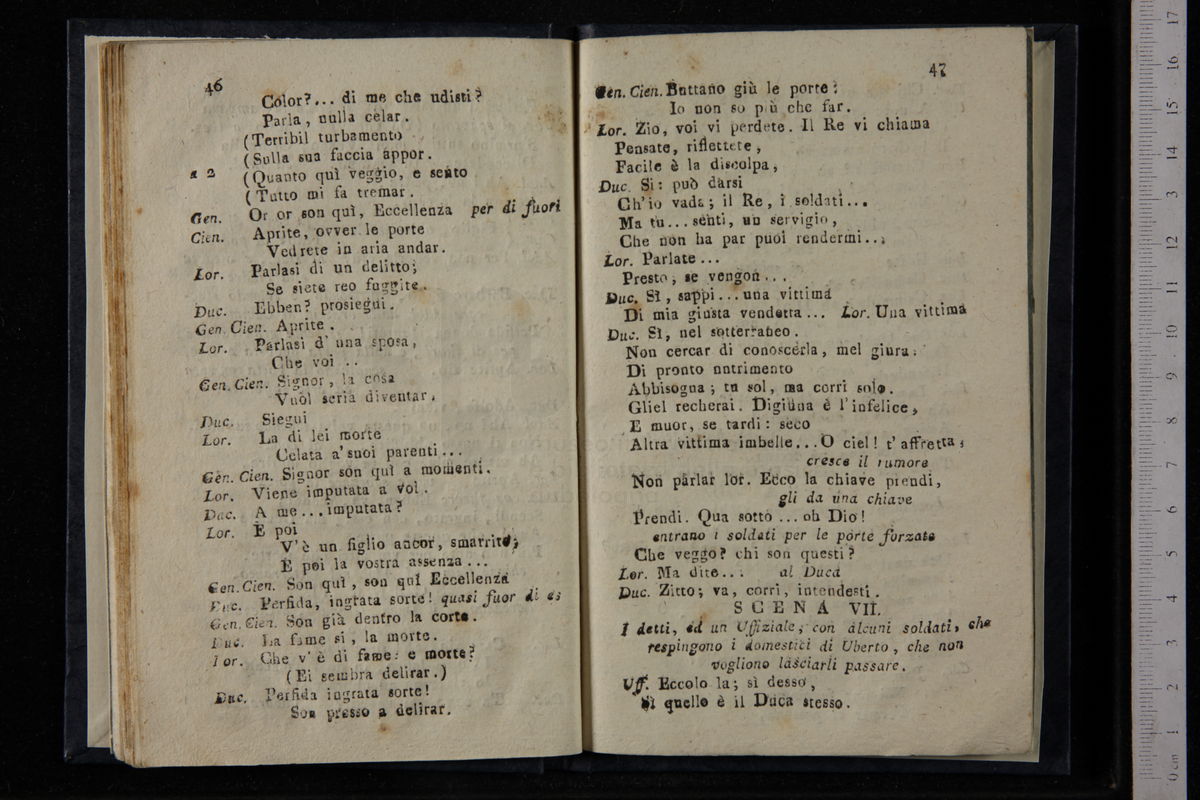 46
Color?... di me che udisti?
Parla, nulla celar.
(Terribil turbamento
(Sulla sua faccia appar.
a 2 (Quanto quì veggio, e sento
(Tutto mi fa tremar.
Gen. Or or son quì, Eccellenza per di fuori
Cien. Aprite, ovver le porte
Vedrete in aria andar.
Lor. Parlasi di un delitto;
Se siete reo fuggite.
Duc. Ebben? prosiegui.
Gen. Cien. Aprite.
Lor. Parlasi d' una sposa,
Che voi ..
Gen. Cien. Signor, la cosa
Vuol seria diventar.
Duc. Siegui
Lor. La di lei morte
Celata a' suoi parenti...
Gen. Cien. Signor son quì a momenti.
Lor. Viene imputata a voi.
Duc. A me... imputata?
Lor. E poi
V' è un figlio ancor, smarrito;
E poi la vostra assenza...
Gen. Cien. Son quì, son quì Eccellenza
Duc. Perfida, ingrata sorte! quasi fuor di es
Gen. Cien. Son già dentro la corte.
Duc. La fame si, la morte.
Lor. Che v' è di fame: e morte?
(Ei sembra delirar.)
Duc. Perfida ingrata sorte!
Son presso a delirar.
47
Gen. Cien. Buttano giù le porte:
Io non so più che far.
Lor. Zio, voi vi perdete. Il Re vi chiama
Pensate, riflettete,
Facile è la discolpa,
Duc. Si: può darsi
Ch'io vada; il Re, i soldati...
Ma tu... senti, un servigio,
Che non ha par puoi rendermi...
Lor. Parlate...
Presto, se vengon...
Duc. Sì, sappi... una vittima
Di mia giusta vendetta... Lor. Una vittima
Duc. Sì, nel sotterraneo.
Non cercar di conoscerla, mel giura.
Di pronto nutrimento
Abbisogna; tu sol, ma corri solo.
Gliel recherai. Digiuna è l'infelice,
E muor, se tardi: seco
Altra vittima imbelle... O ciel! t' affretta;
cresce il rumore
Non parlar lor. Ecco la chiave prendi,
gli da una chiave
Prendi. Qua sotto ... oh Dio!
entrano i soldati per le porte forzate
Che veggo? chi son questi?
Lor. Ma dite... al Duca
Duc. Zitto; va, corri, intendesti.
SCENA VII.
I detti, ed un Uffiziale, con alcuni soldati, che
respingono i domestici di Uberto, che non
vogliono lasciarli passare.
Uff. Eccolo la; sì desso,
Sì quello è il Duca stesso.